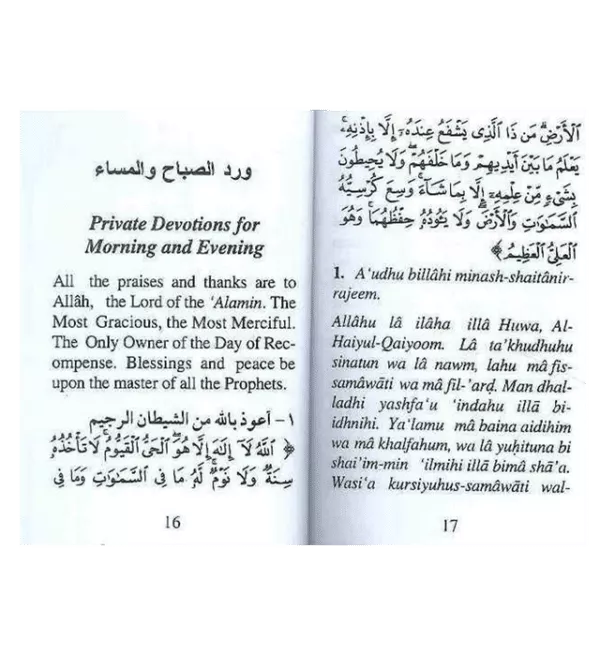 ورد الصباح والمساء
Private Devotions for
Morning and Evening
All the praises and thanks are to
Allâh, the Lord of the ‘Alamin. The
Most Gracious, the Most Merciful.
The Only Owner of the Day of Rec-
ompense. Blessings and peace be
upon the master of all the Prophets.
١- أعوذ بالله من الشيطان الرجيم
﴿ ٱللَّهُ لَآ إِلَٰهَ إِلَّا هُوَ ٱلْحَىُّ ٱلْقَيُّومُ لَا تَأْخُذُهُۥ
سِنَةٌ وَلَا نَوْمٌ لَّهُۥ مَا فِى ٱلسَّمَٰوَٰتِ وَمَا فِى
16
ٱلْأَرْضِ مَن ذَا ٱلَّذِى يَشْفَعُ عِندَهُۥٓ إِلَّا بِإِذْنِهِۦ
يَعْلَمُ مَا بَيْنَ أَيْدِيهِمْ وَمَا خَلْفَهُمْ وَلَا يُحِيطُونَ
بِشَىْءٍ مِّنْ عِلْمِهِۦٓ إِلَّا بِمَا شَآءَ وَسِعَ كُرْسِيُّهُ
ٱلسَّمَٰوَٰتِ وَٱلْأَرْضَ وَلَا يَـُٔودُهُۥ حِفْظُهُمَا وَهُوَ
ٱلْعَلِىُّ ٱلْعَظِيمُ ﴾
1. A‘udhu billâhi minash-shaitânir-
rajeem.
Allâhu lâ ilâha illâ Huwa, Al-
Haiyul-Qaiyoom. Lâ ta’khudhuhu
sinatun wa lâ nawm, lahu mâ fis-
samâwâti wa mâ fil-’ard. Man dhal-
ladhi yashfa‘u ‘indahu illâ bi-
idhnihi. Ya‘lamu mâ baina aidihim
wa mâ khalfahum, wa lâ yuhituna bi
shai’im-min ‘ilmihi illâ bimâ shâ’a.
Wasi‘a kursiyuhus-samâwâti wal-
17